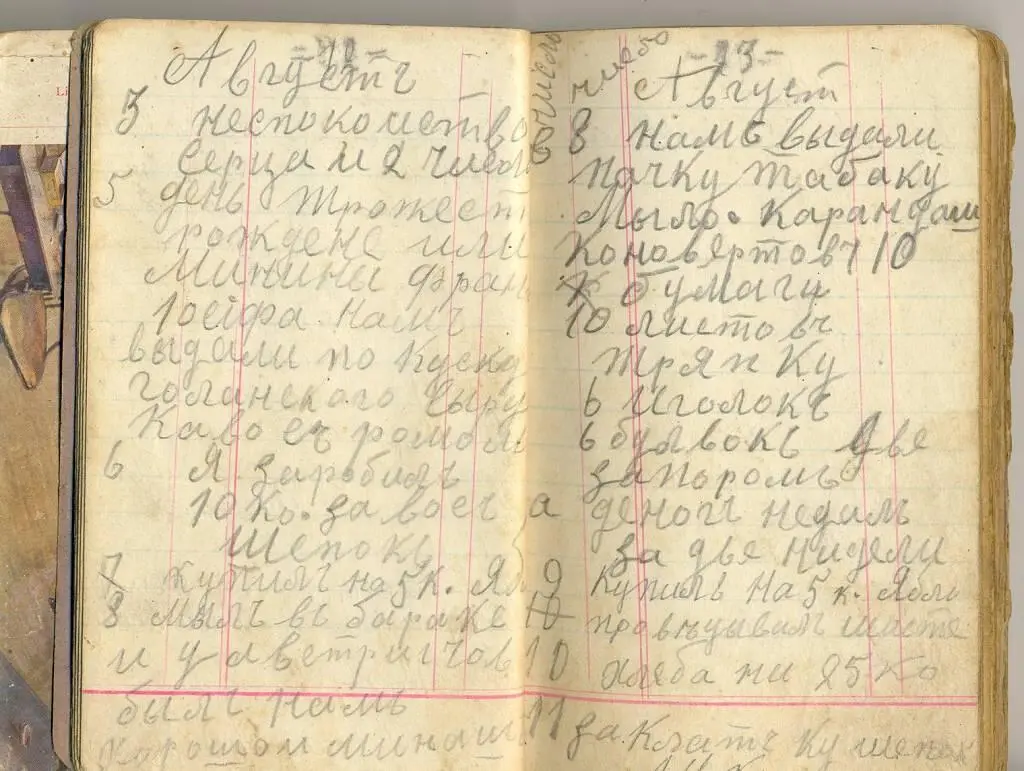 Августъ
3 неспокоиство
серца и 2 числ
5 день тржест
рождене или
Минины фран
Іосіфа. намъ
выдали по куск
голанского сыру
Каво съ
6 Я заробилъ
10 Ко. за воеъ
шепокъ
7 купилъ на 5 к. Ял
8 мылъ въ бараке
и у австриічов
былъ намъ
хорошои
число
-13-
число Август
в 8 намъ выдали
пачку табаку
Мыло. Карандаш
Коновертовъ 10
бумаги
10 листовъ
тряпку
6 иголокъ
6 булвокъ Две
запоромъ
а деногъ недалъ
за две нидели
9 купилъ на 5 к. Ябло
10
10 хлеба на 25 ко
11 за.